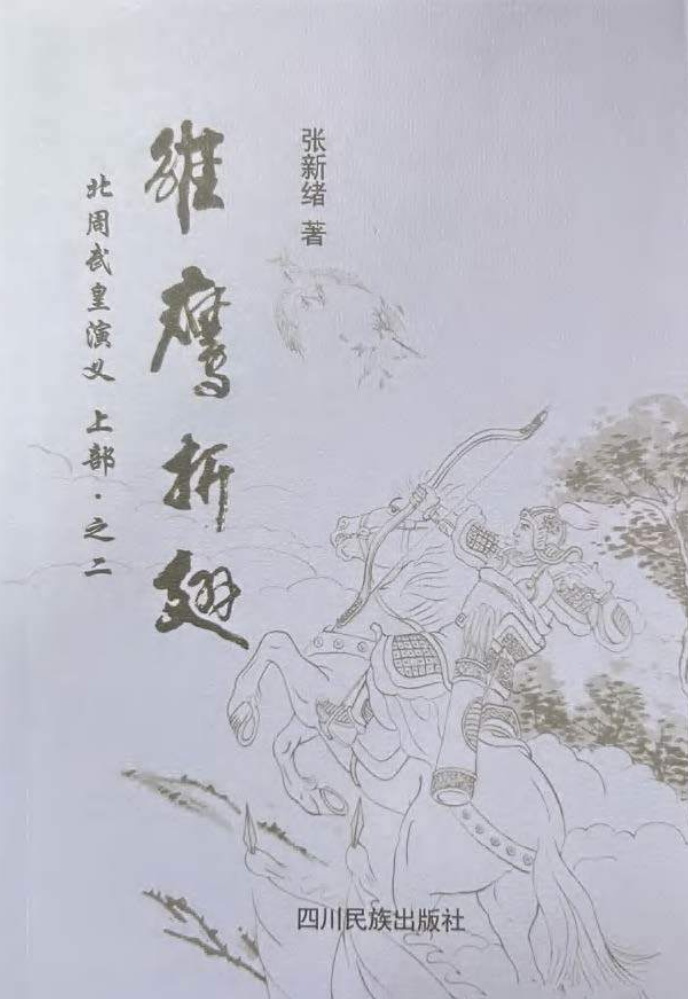 张新绪 著
雏鹰折翅
北周武皇演义 上部·之二
四川民族出版社